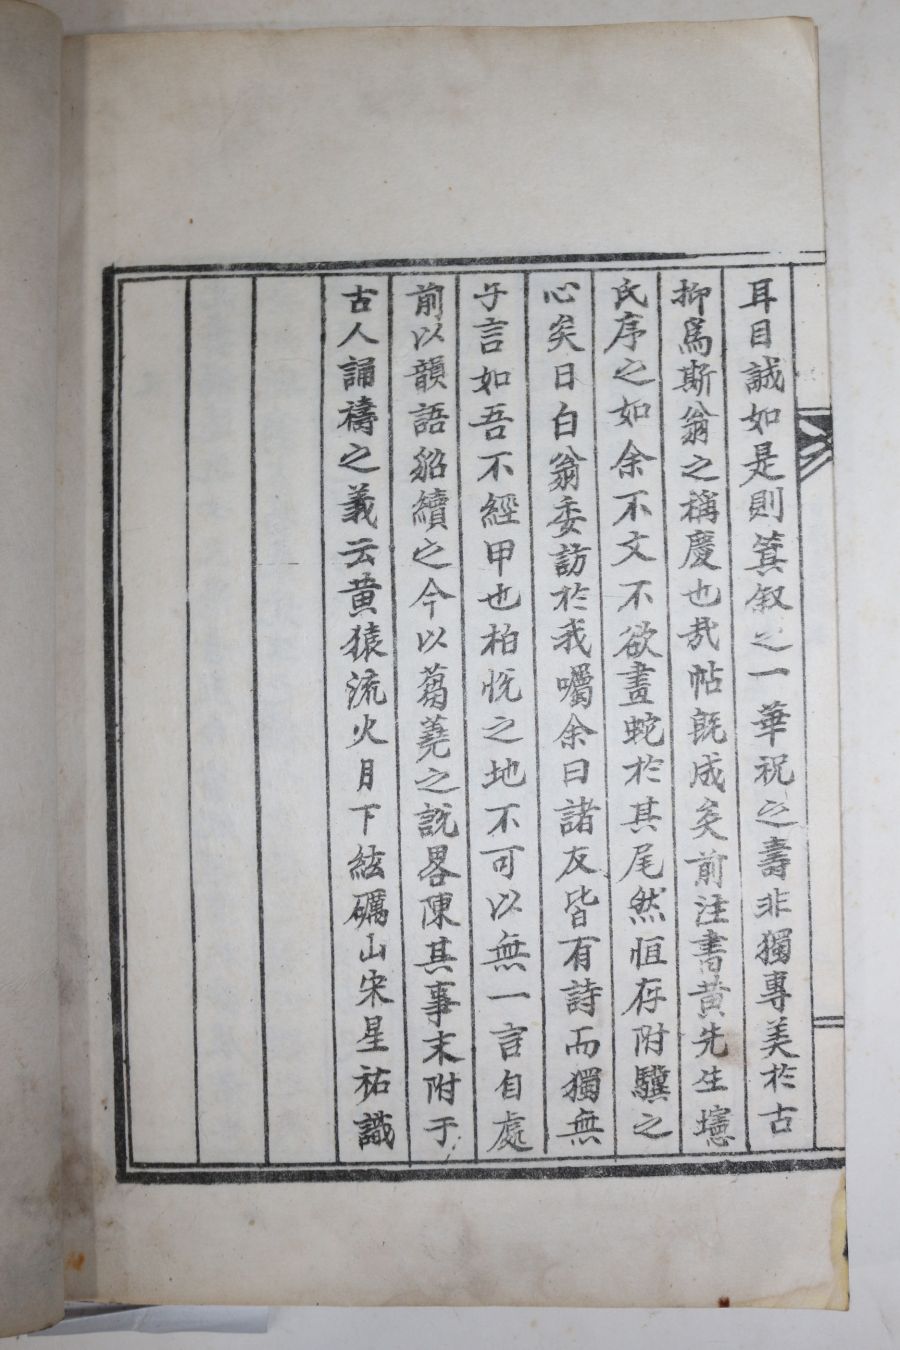 耳目誠如是則箕叙之一華祝之壽非獨專美於古
抑爲斯翁之稱慶也哉帖旣成矣前注書黄先生㙯
氏序之如余不文不欲畫蛇於其尾然恒存附驥之
心矣日白翁委訪於我囑余曰諸友皆有詩而獨無
子言如吾不經甲也柏悅之地不可以無一言自處
前以韻語貂續之今以蒭蕘之說畧陳其事末附于
古人誦禱之義云黄猿流火月下絃礪山宋星祐識